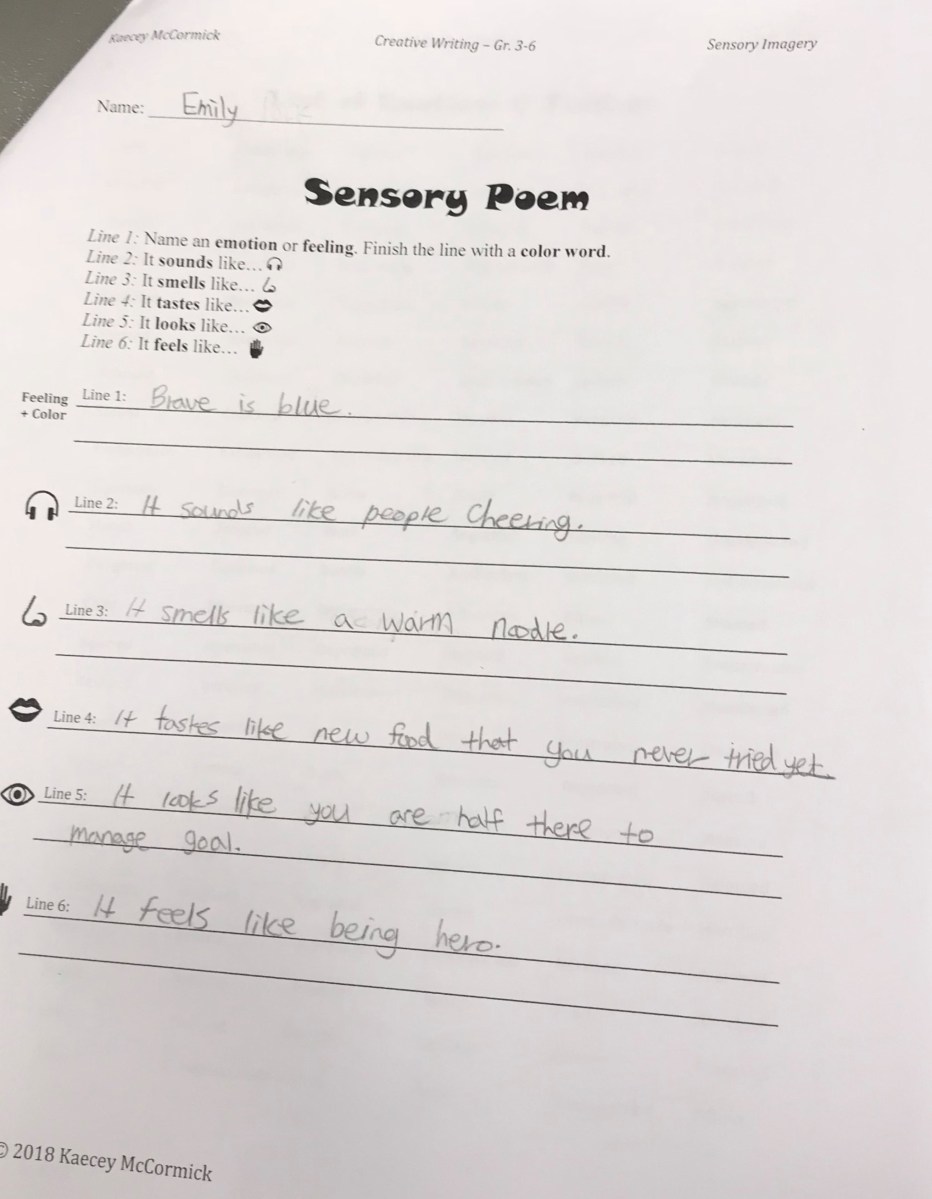 Kaecey McCormick Creative Writing – Gr. 3-6 Sensory Imagery
Name: Emily
Sensory Poem
Line 1: Name an emotion or feeling. Finish the line with a color word.
Line 2: It sounds like…
Line 3: It smells like…
Line 4: It tastes like…
Line 5: It looks like…
Line 6: It feels like…
Feeling
+ Color
Line 1: Brave is blue.
Line 2: It sounds like people Cheering.
Line 3: It smells like a warm noodle.
Line 4: It tastes like new food that you never tried yet.
Line 5: It looks like you are half there to
manage goal.
Line 6: It feels like being hero.
© 2018 Kaecey McCormick